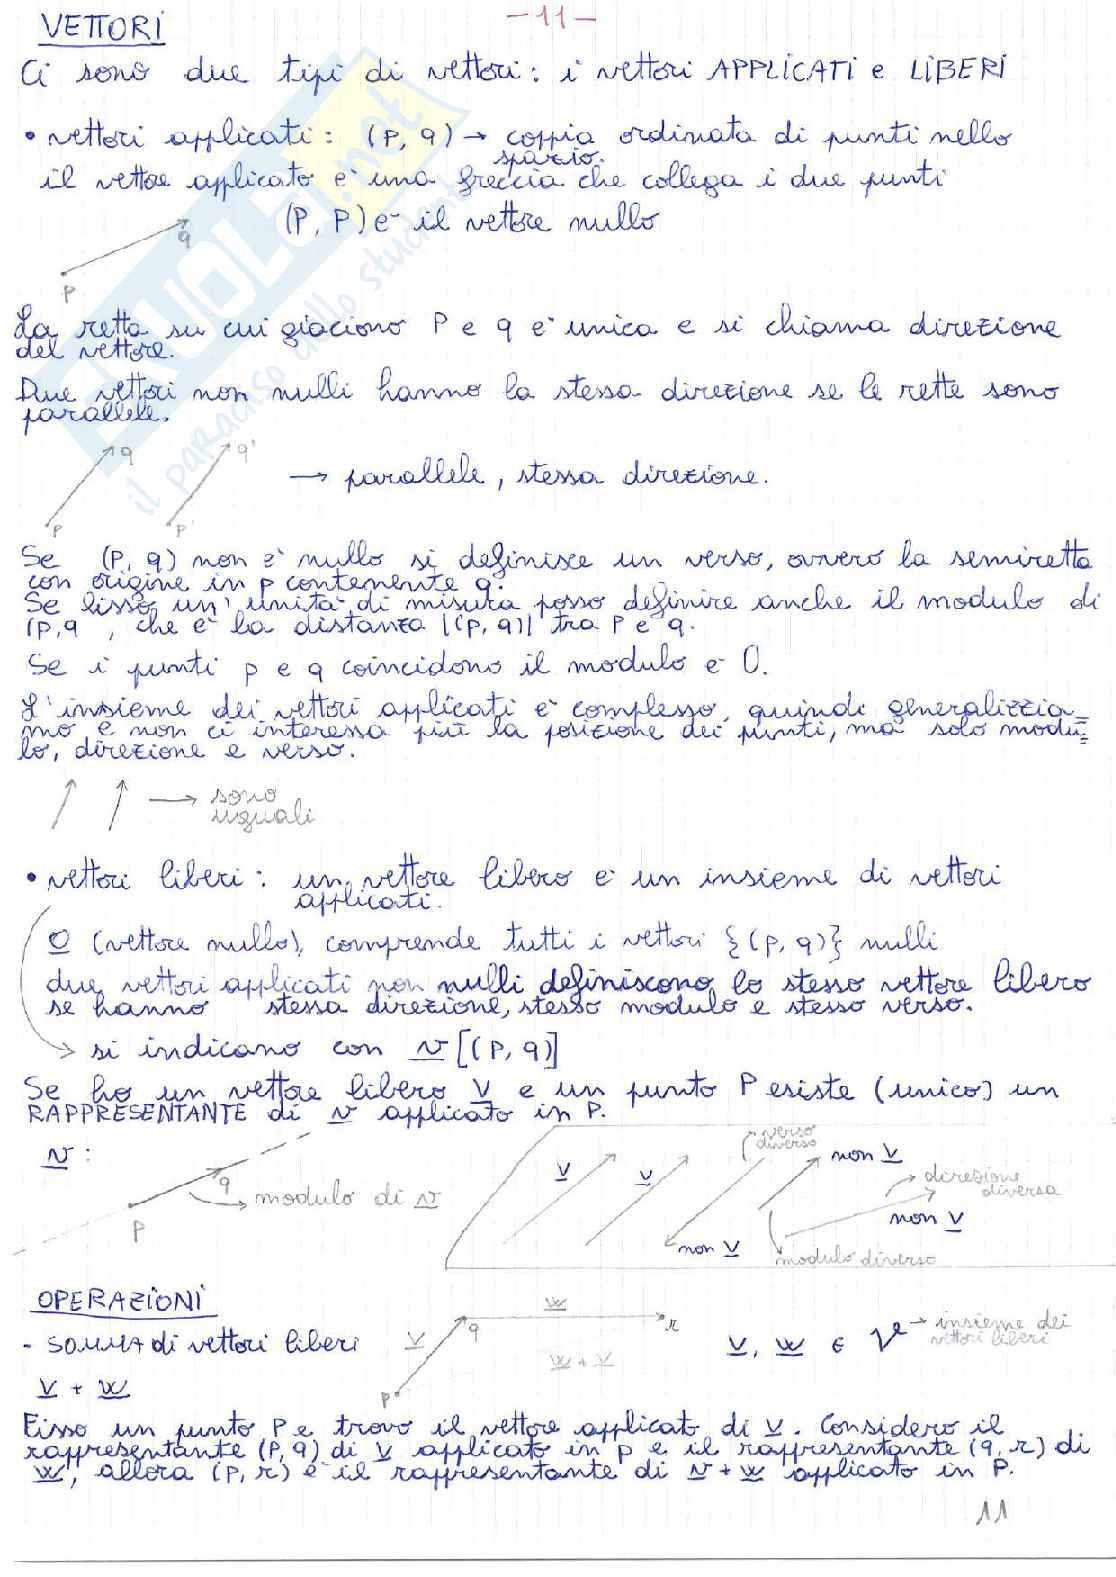 -11-
VETTORI
Ci sono due tipi di vettori: i vettori APPLICATI e LIBERI
• vettori applicati: (P, q) → coppia ordinata di punti nello
spazio.
il vettore applicato è una freccia che collega i due punti
(P, P) è il vettore nullo
q
P
La retta su cui giaciono P e q è unica e si chiama direzione
del vettore.
Due vettori non nulli hanno la stessa direzione se le rette sono
parallele.
q q'
→ parallele, stessa direzione.
P P'
Se (P, q) non è nullo si definisce un verso, ovvero la semiretta
con origine in p contenente q.
Se fisso un' unità di misura posso definire anche il modulo di
(P,q , che è la distanza |(P,q)| tra P e q.
Se i punti p e q coincidono il modulo è 0.
L'insieme dei vettori applicati è complesso, quindi generalizzia=
mo e non ci interessa più la posizione dei punti, ma solo modu=
lo, direzione e verso.
→ sono
uguali
• vettori liberi: un vettore libero è un insieme di vettori
applicati.
0 (vettore nullo), comprende tutti i vettori {(p,q)} nulli
due vettori applicati non nulli definiscono lo stesso vettore libero
se hanno stessa direzione, stesso modulo e stesso verso.
si indicano con v [(P,q)]
Se ho un vettore libero v e un punto P esiste (unico) un
RAPPRESENTANTE di v applicato in P.
v:
q
P
modulo di v
v v
verso
diverso
non v
direzione
diversa
non v
non v
modulo diverso
OPERAZIONI
- SOMMA di vettori liberi
v + w
v
w
q
r
w + v
P
v, w ∈ V → insieme dei
vettori liberi
Fisso un punto P e trovo il vettore applicat di v. Considero il
rappresentante (P,q) di v applicato in p e il rappresentante (q,r) di
w, allora (P,r) è il rappresentante di v + w applicato in P.
11
SKUOLA.net
il paradiso dello studente